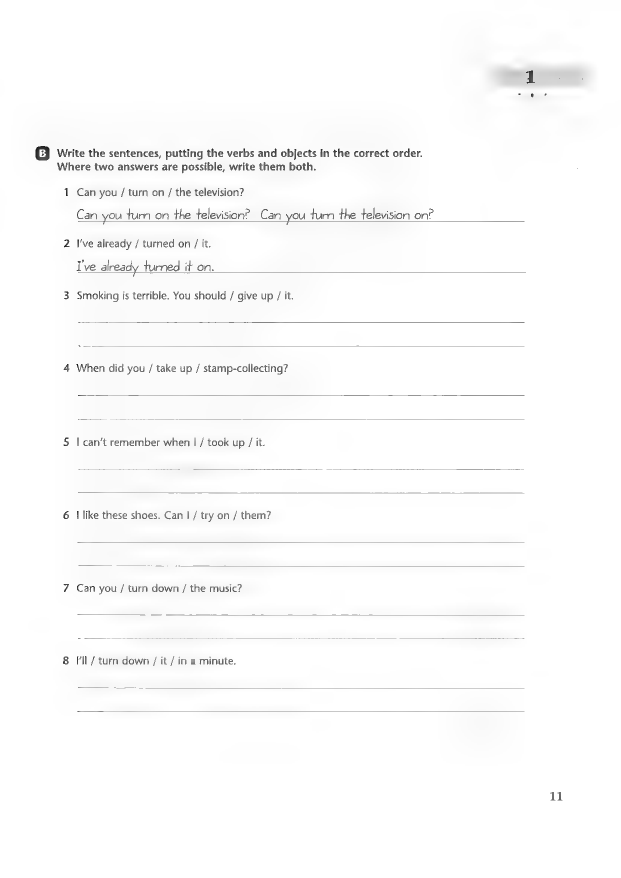 1
B Write the sentences, putting the verbs and objects in the correct order.
Where two answers are possible, write them both.
1 Can you / turn on / the television?
Can you turn on the television? Can you turn the television on?
2 I've already / turned on / it.
I've already turned it on.
3 Smoking is terrible. You should / give up / it.
4 When did you / take up / stamp-collecting?
5 I can't remember when I / took up / it.
6 I like these shoes. Can I / try on / them?
7 Can you / turn down / the music?
8 I'll / turn down / it / in a minute.
11